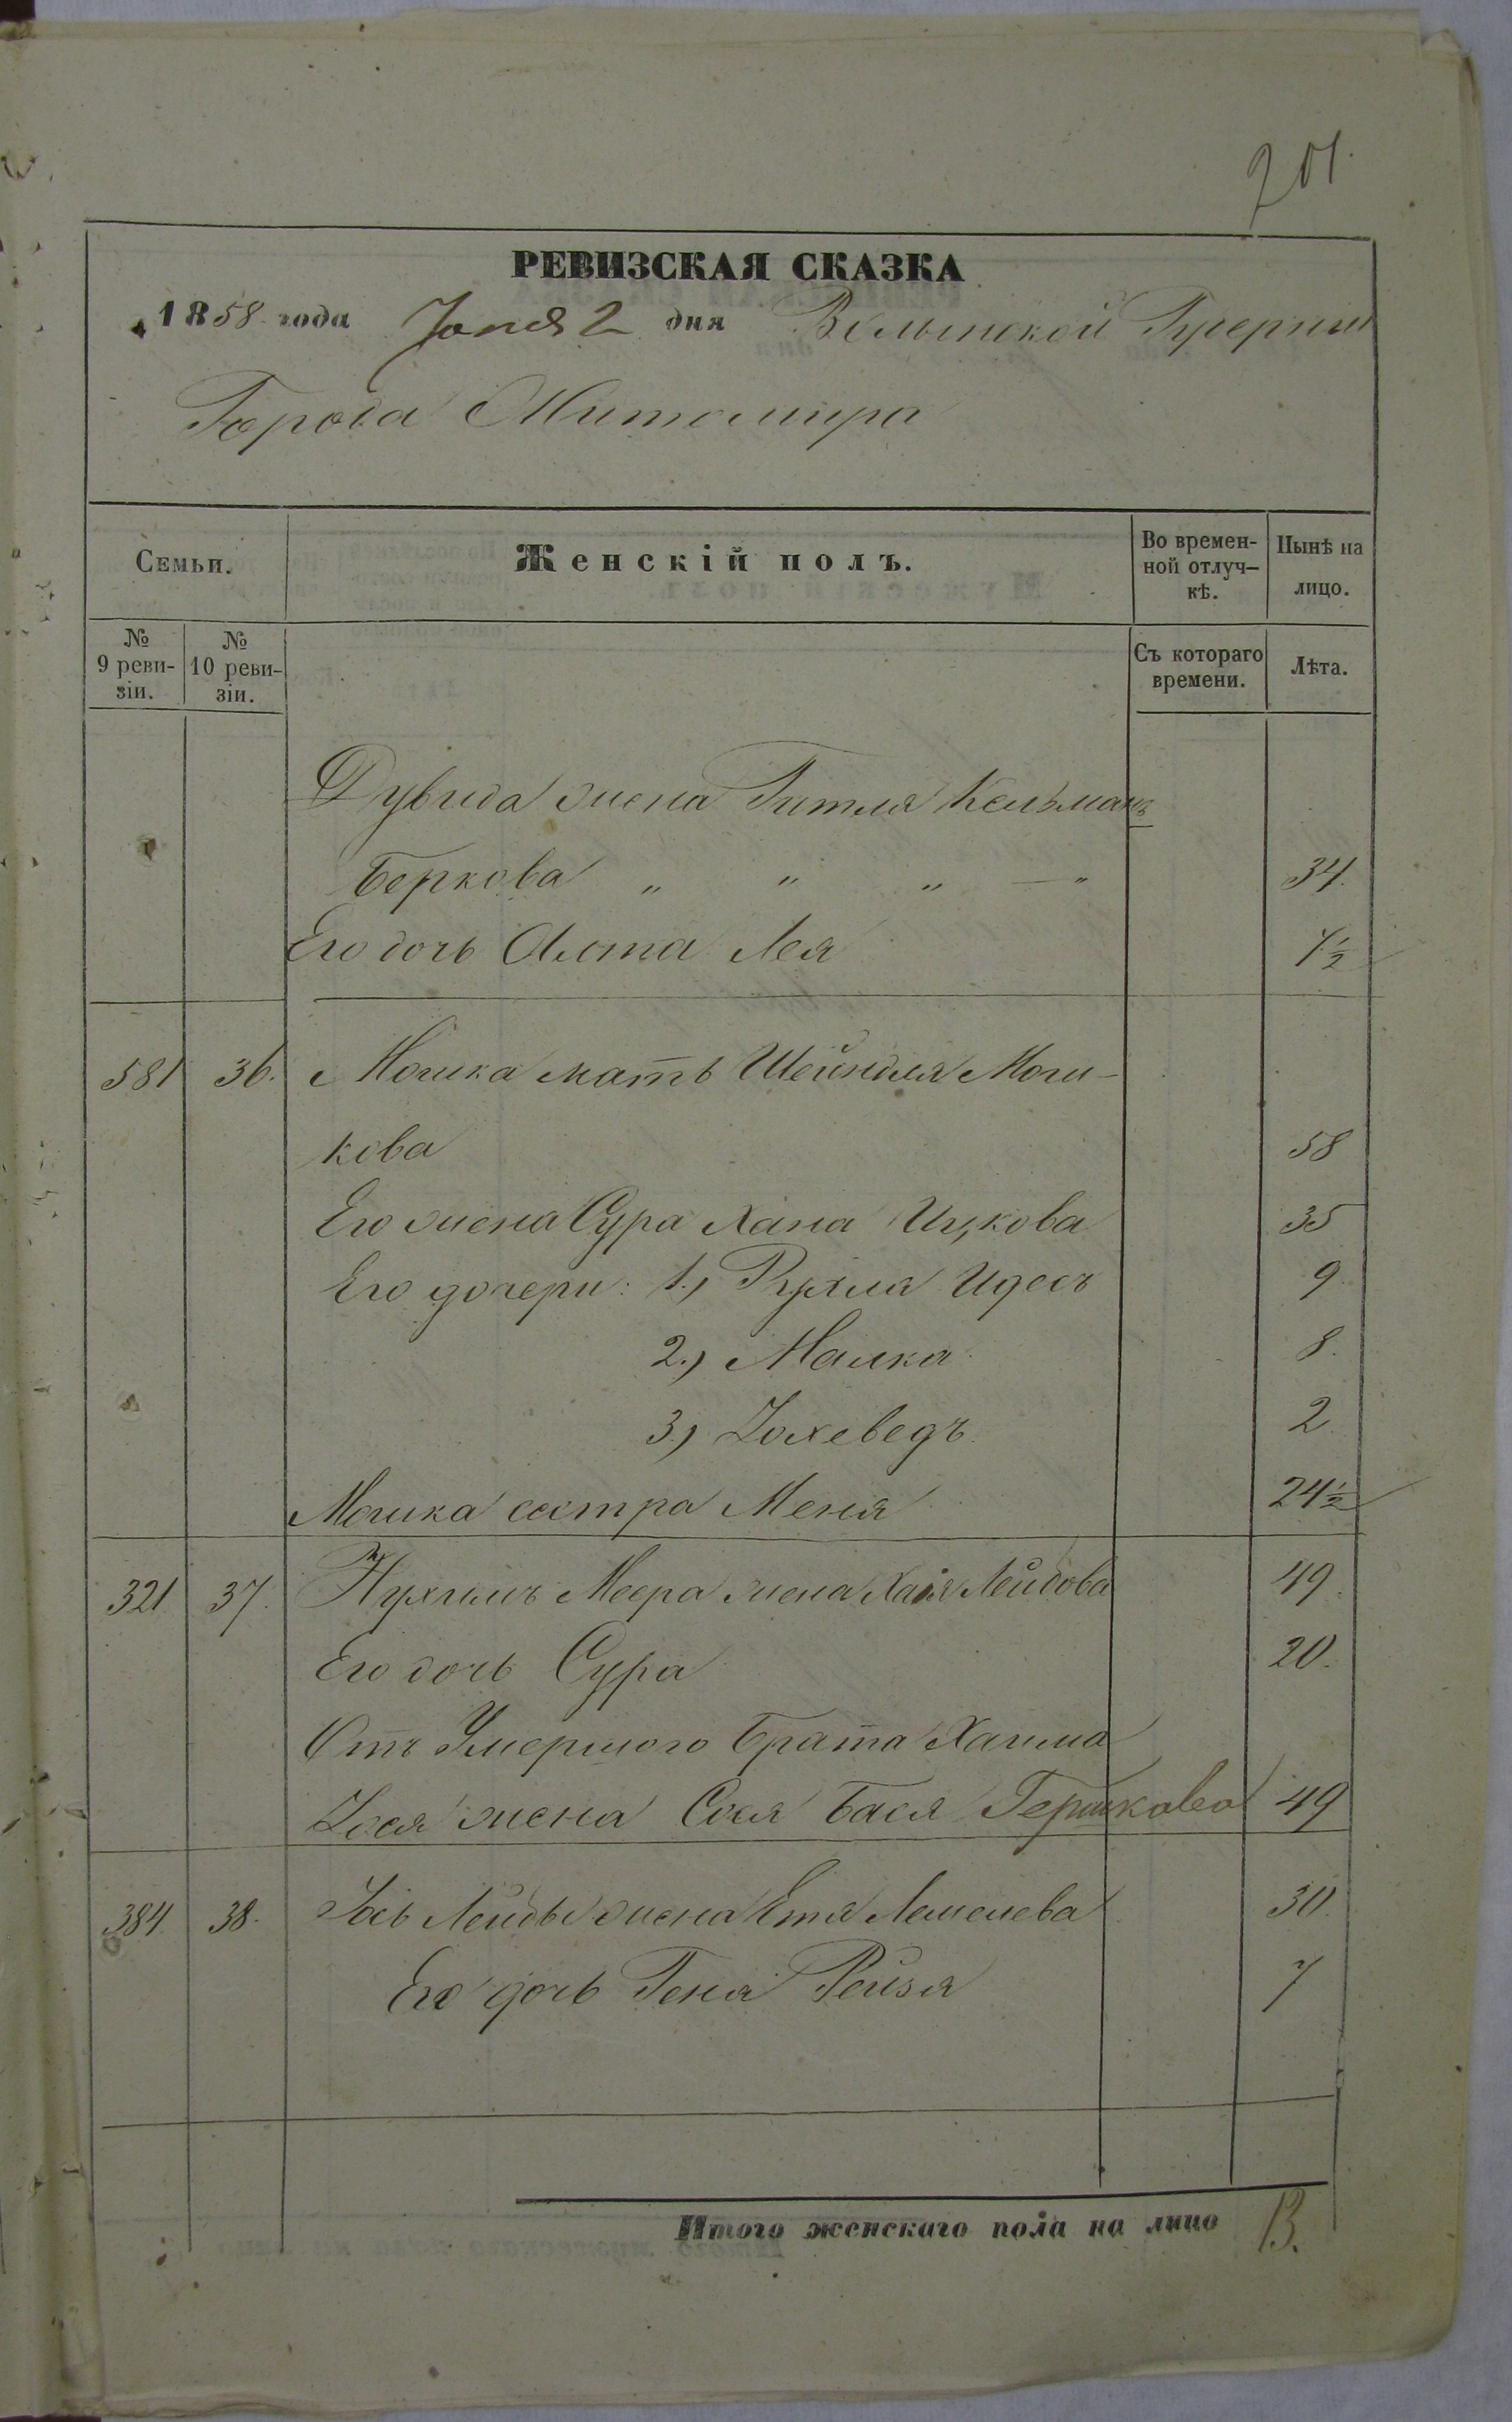 201.
РЕВИЗСКАЯ СКАЗКА
1858 года Іюня 2 дня Волынской Губерніи
Города Житомира
Семьи.
Женскій полъ.
Во времен-
ной отлуч-
кѣ.
Нынѣ на
лицо.
№
9 реви-
зіи.
№
10 реви-
зіи.
Съ котораго
времени.
Лѣта.
Дувида жена Гитля Кельманъ
Беркова " " " — " 34.
Его дочь Алта Лея 1½
581 36. Мошка мать Шейндля Мош-
кова 58
Его жена Сура Хана Ицкова 35
Его дочери: 1.) Рухля Идесъ 9
2.) Малка 8.
3.) Іохеведъ 2
Мошка сестра Меня 24½
321 37. Нухимъ Меера жена Хая Лейбова 49.
Его дочь Сура 20.
Отъ Умершого брата Хаима
Іося жена Сося Бася Гершкова 49
384 38. Іось Лейбы жена Етя Лемелева 30.
Его дочь Геня Рейзя 7
Итого женскаго пола на лицо 13.